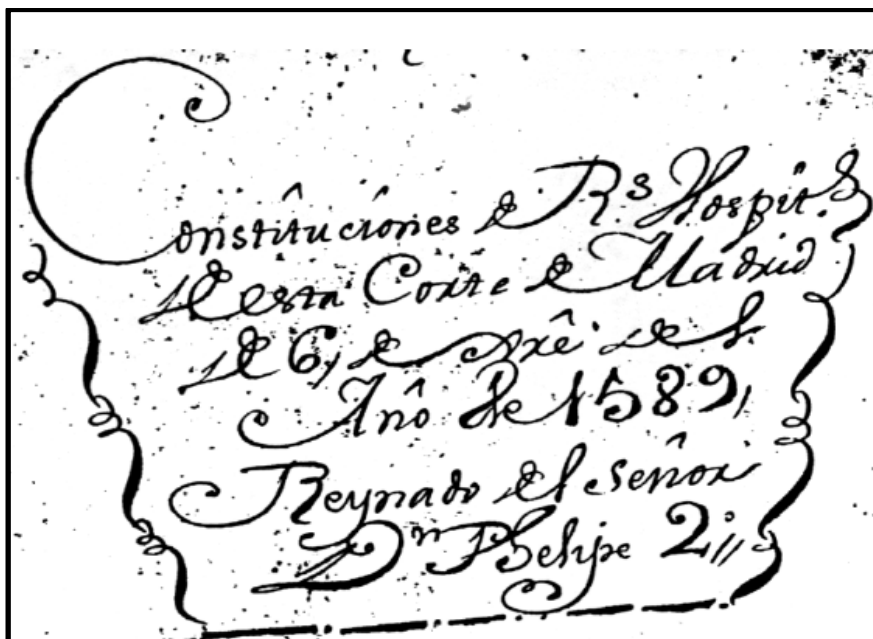 Constituciones de R.s Hospit.s
de esta Corte de Madrid
de 6, de de el
Año de 1589,,
Reynado del señor
Dn Phelipe 2,,